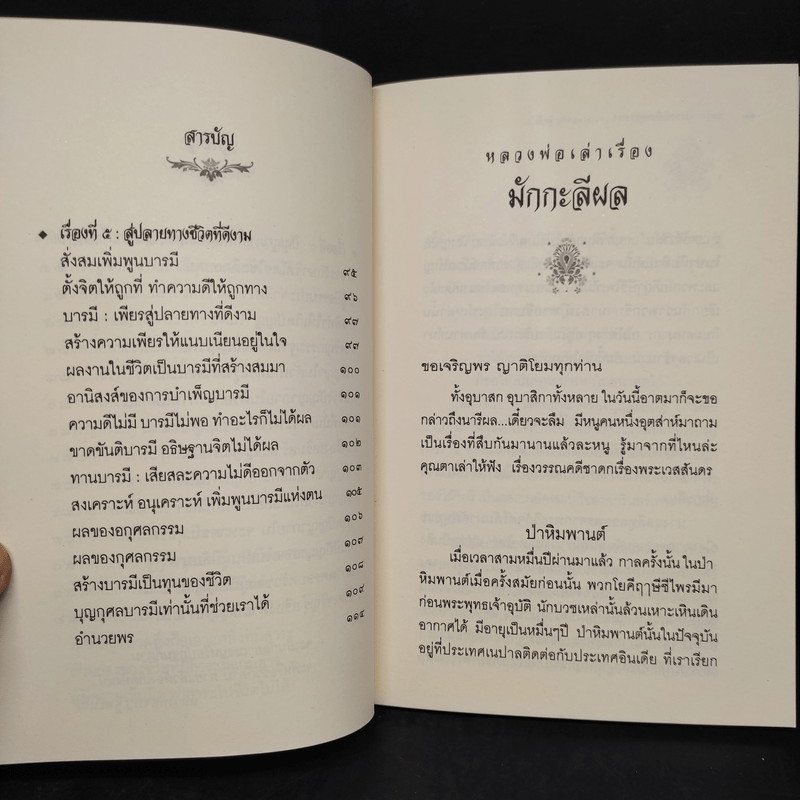 สารบัญ
◆ เรื่องที่ ๕ : สู่ปลายทางชีวิตที่ดีงาม
สั่งสมเพิ่มพูนบารมี ๙๕
ตั้งจิตให้ถูกที่ ทำความดีให้ถูกทาง ๙๖
บารมี : เพียรสู่ปลายทางที่ดีงาม ๙๗
สร้างความเพียรให้แนบเนียนอยู่ในใจ ๙๗
ผลงานในชีวิตเป็นบารมีที่สร้างสมมา ๑๐๐
อานิสงส์ของการบำเพ็ญบารมี ๑๐๑
ความดีไม่มี บารมีไม่พอ ทำอะไรก็ไม่ได้ผล ๑๐๑
ขาดขันติบารมี อธิษฐานจิตไม่ได้ผล ๑๐๒
ทานบารมี : เสียสละความไม่ดีออกจากตัว ๑๐๓
สงเคราะห์ อนุเคราะห์ เพิ่มพูนบารมีแห่งตน ๑๐๕
ผลของอกุศลกรรม ๑๐๖
ผลของกุศลกรรม ๑๐๗
สร้างบารมีเป็นทุนของชีวิต ๑๐๘
บุญกุศลบารมีเท่านั้นที่ช่วยเราได้ ๑๐๙
อำนวยพร ๑๑๔
หลวงพ่อเล่าเรื่อง
มักกะลีผล
ขอเจริญพร ญาติโยมทุกท่าน
ทั้งอุบาสก อุบาสิกาทั้งหลาย ในวันนี้อาตมาก็จะขอ
กล่าวถึงนารีผล...เดี๋ยวจะลืม มีหนูคนหนึ่งอุตส่าห์มาถาม
เป็นเรื่องที่สืบกันมานานแล้วละหนู รู้มาจากที่ไหนล่ะ
คุณตาเล่าให้ฟัง เรื่องวรรณคดีชาดกเรื่องพระเวสสันดร
ป่าหิมพานต์
เมื่อเวลาสามหมื่นปีผ่านมาแล้ว กาลครั้งนั้น ในป่า
หิมพานต์เมื่อครั้งสมัยก่อนนั้น พวกโยคีฤๅษีชีไพรมีมา
ก่อนพระพุทธเจ้าอุบัติ นักบวชเหล่านั้นล้วนเหาะเหินเดิน
อากาศได้ มีอายุเป็นหมื่นๆปี ป่าหิมพานต์นั้นในปัจจุบัน
อยู่ที่ประเทศเนปาลติดต่อกับประเทศอินเดีย ที่เราเรียก